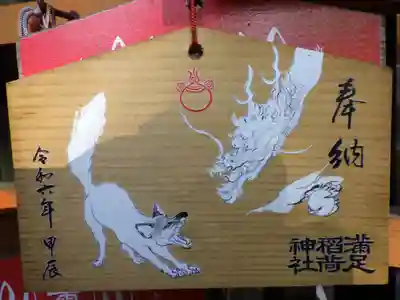 奉納
満足
稲荷
神社
令和六年 甲辰